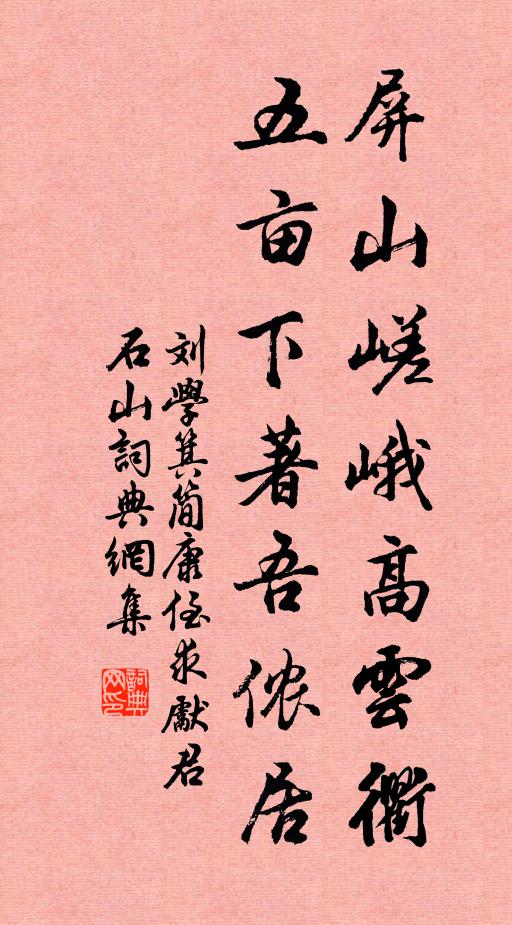 屏山嵯峨高雲衢
五亩下著吾侬居
刘學箕簡康侄求獻君
石山詞典網集
詞典
网印